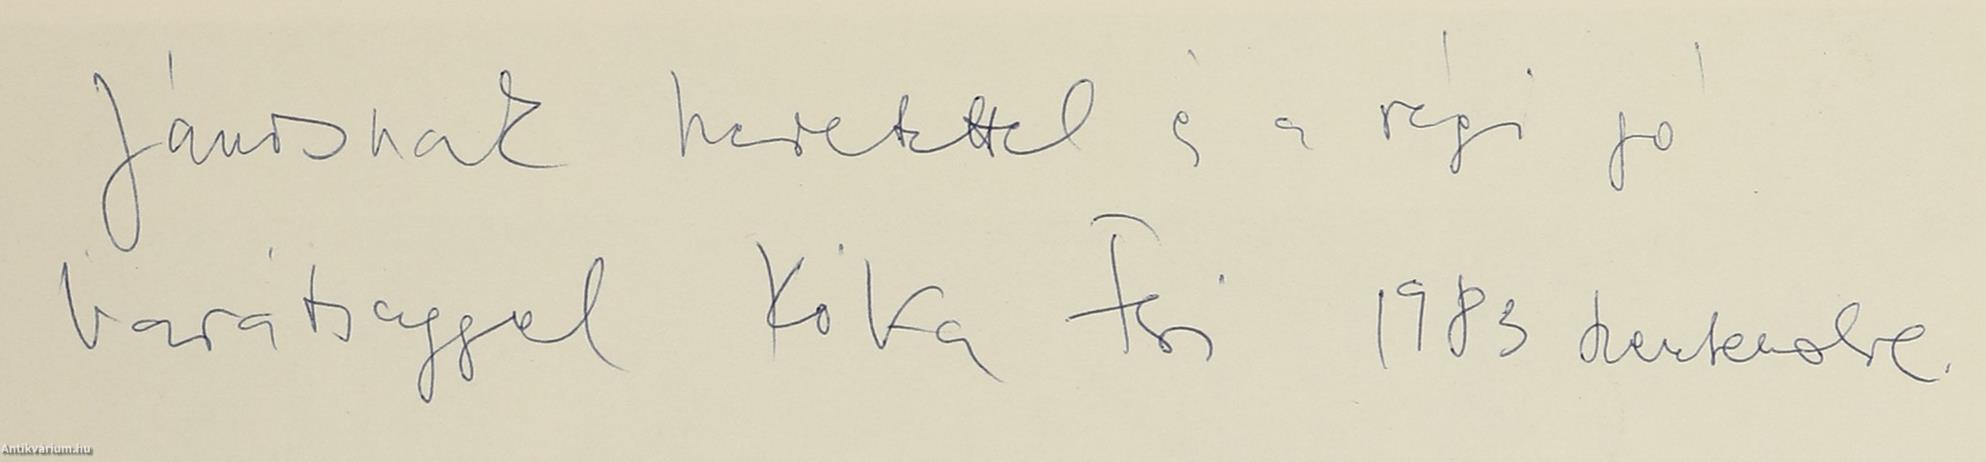 Jánosnak szeretettel és a régi jó
barátsággal Kóka Feri 1983 Szentendre.
Antikvárium.hu